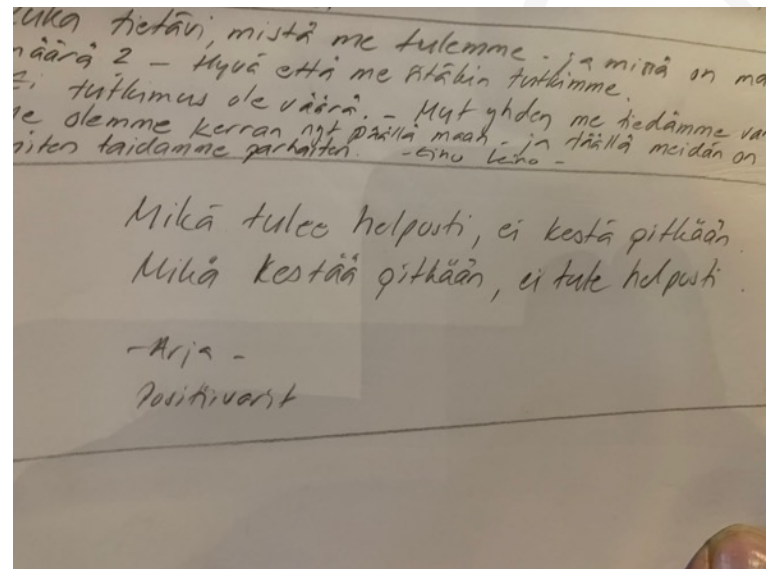 kuka tietävi, mistä me tulemme - ja missä on ma
määrä? - Hyvä että me sitäkin tutkimme.
Ei tutkimus ole väärä. - Mut yhden me tiedämme va
me olemme kerran nyt päällä maan - ja täällä meidän on
miten taidamme parhaiten. - Eino Leino -
Mikä tulee helposti, ei kestä pitkään.
Mikä kestää pitkään, ei tule helposti.
- Arja -
Positiivarit